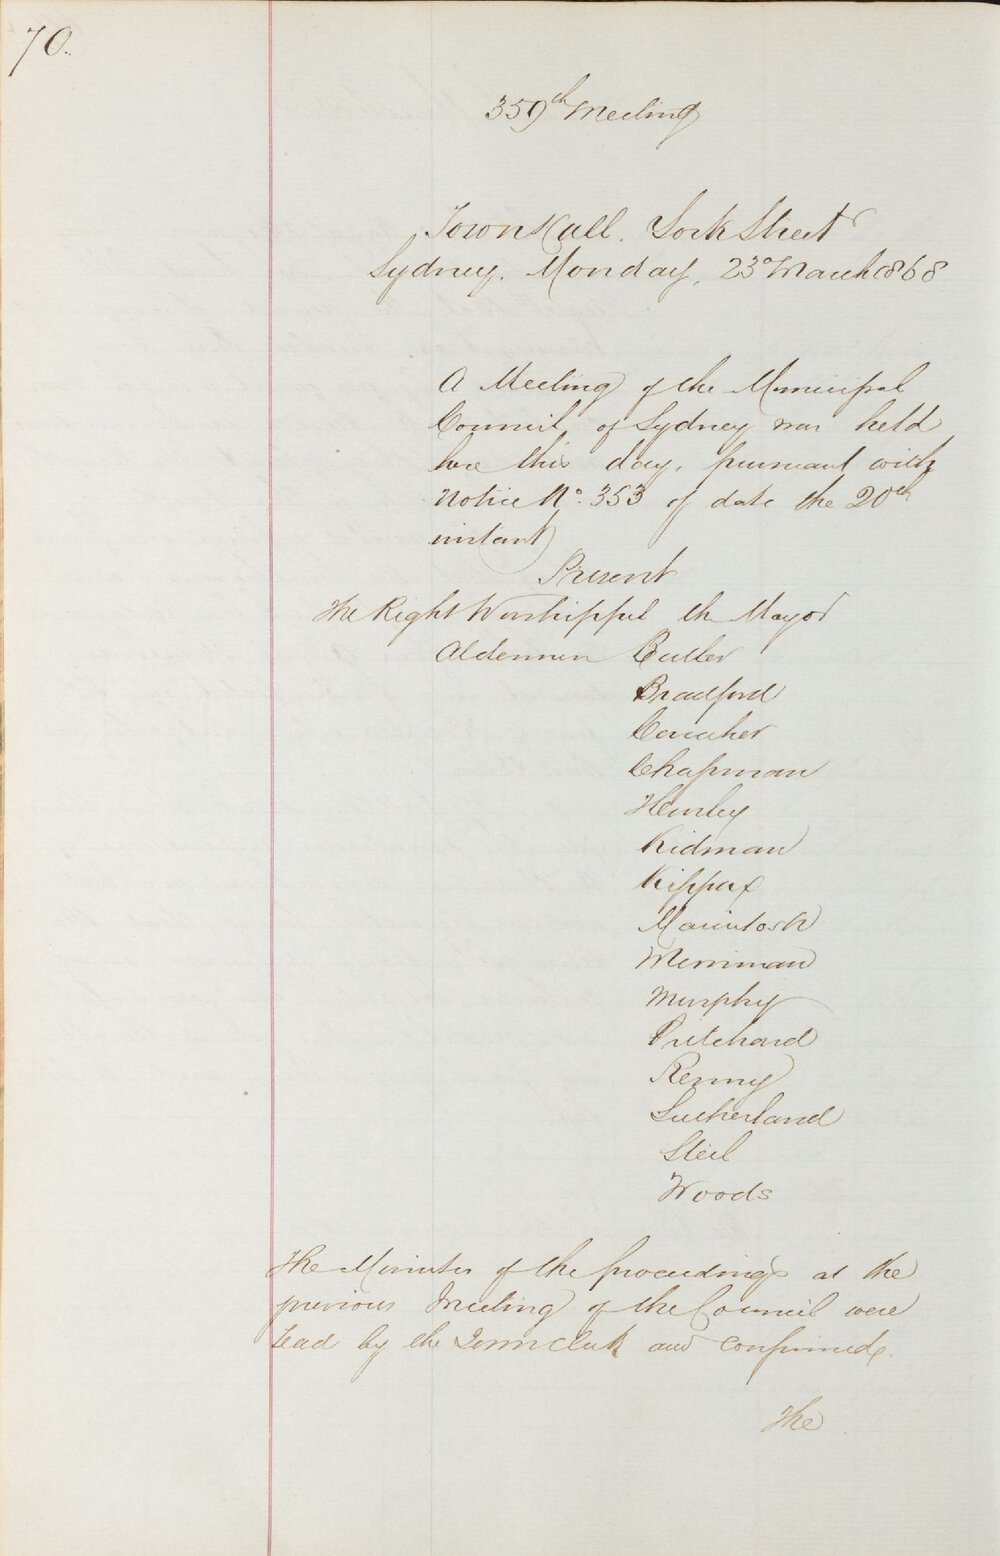 70.
359th Meeting
Town Hall. York Street
Sydney. Monday, 23d March 1868
A Meeting of the Municipal
Council of Sydney was held
here this day, pursuant with
Notice No. 353 of date the 20th
instant
Present
The Right Worshipful the Mayor
Aldermen Butler
Bradford
Caraher
Chapman
Hurley
Kidman
Kippax
Macintosh
Merriman
Murphy
Pritchard
Renny
Sutherland
Steel
Woods
The Minutes of the proceedings at the
previous Meeting of the Council were
read by the Town Clerk and confirmed.
The